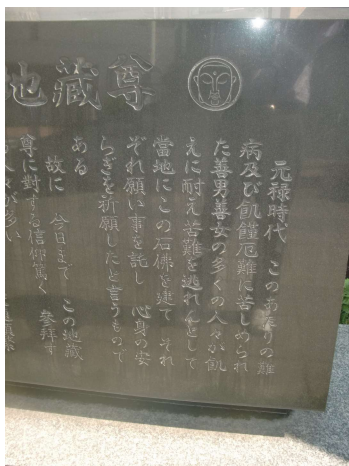 地藏尊
元禄時代 このあたりの難
病及び飢饉厄難に苦しめられ
た善男善女の多くの人々か飢
えに耐え苦難を逃れんとして
當地にこの石佛を建て それ
ぞれ願い事を託し 心身の安
らぎを祈願したと言うもので
ある
故に 今日まで この地藏
尊に対する信仰篤く 參拜す
人々が多い